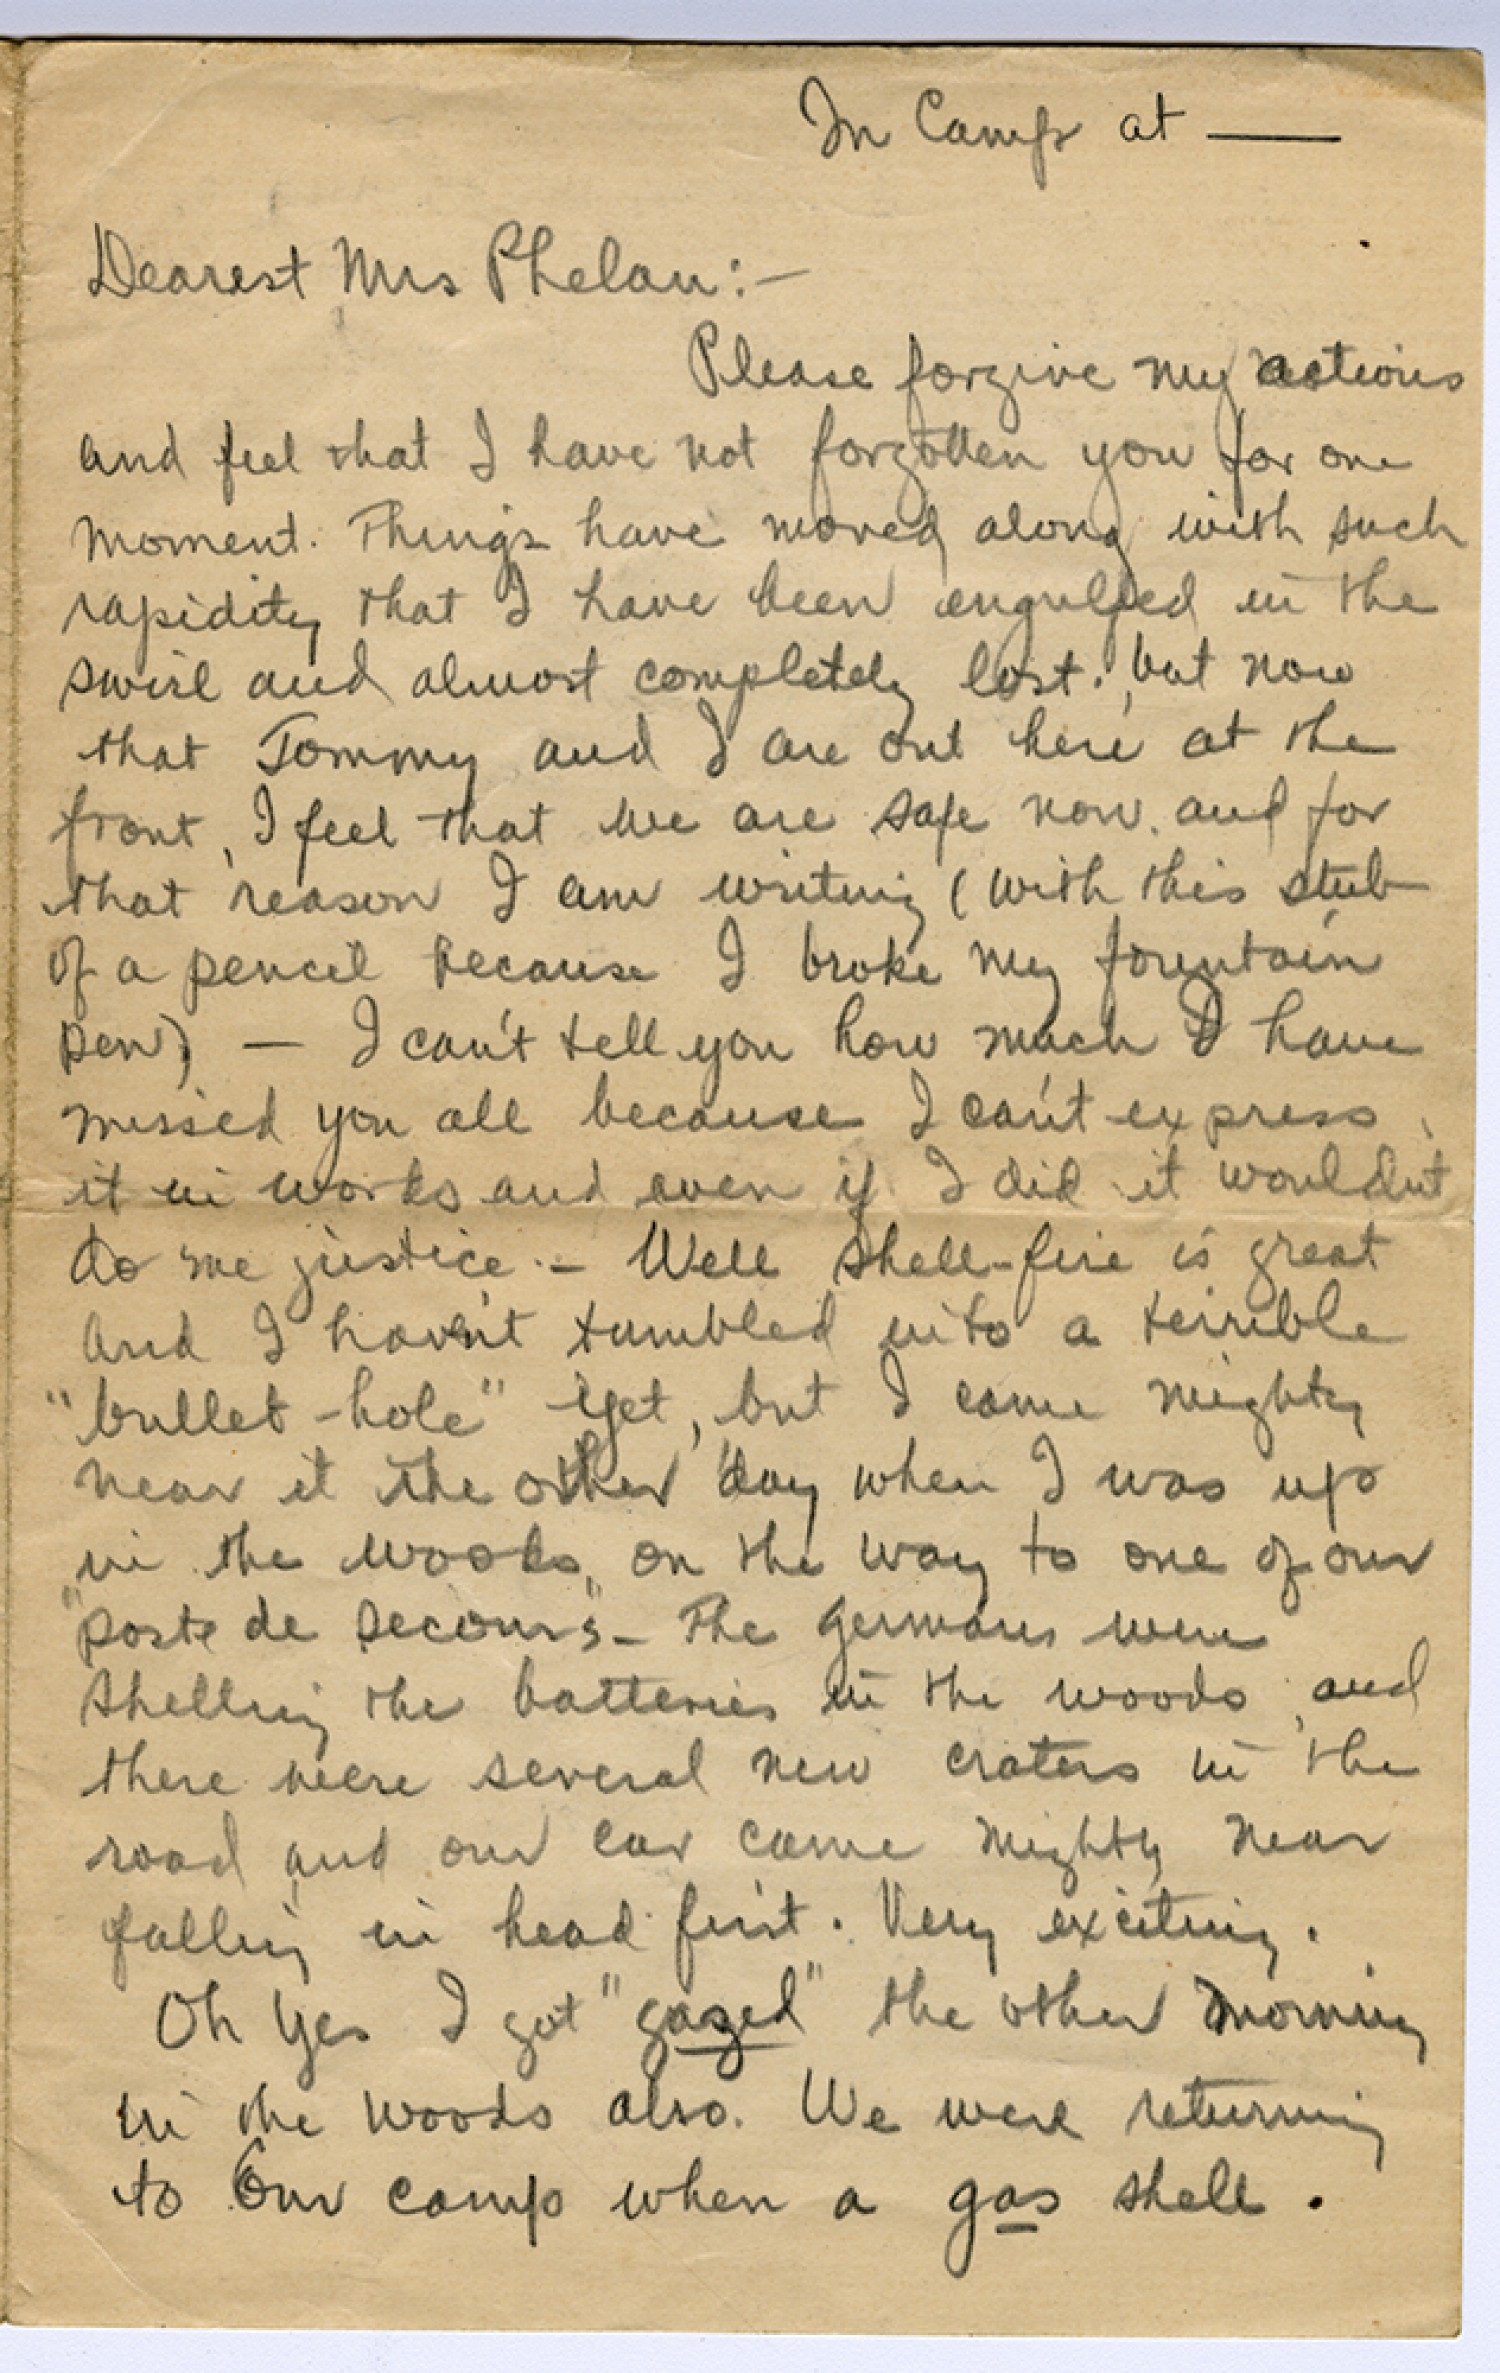 In Camp at ——
Dearest Mrs Phelan:—
Please forgive my actions
and feel that I have not forgotten you for one
moment. Things have moved along with such
rapidity that I have been engulfed in the
swirl and almost completely lost. but now
that Tommy and I are out here at the
front, I feel that we are safe now. and for
that reason I am writing (with this stub
of a pencil because I broke my fountain
pen) — I can't tell you how much I have
missed you all because I can't express
it in works and even if I did it wouldnt
do me justice. — Well shell-fire is great
and I haven't tumbled into a terrible
"bullet-hole" yet, but I came mighty
near it the other day when I was up
in the woods on the way to one of our
"poste de secours" — The Germans were
shelling the batteries in the woods, and
there were several new craters in the
road and our car came mighty near
falling in head first. Very exciting.
Oh Yes I got "gazed" the other morning
in the woods also. We were returning
to our camp when a gas shell.